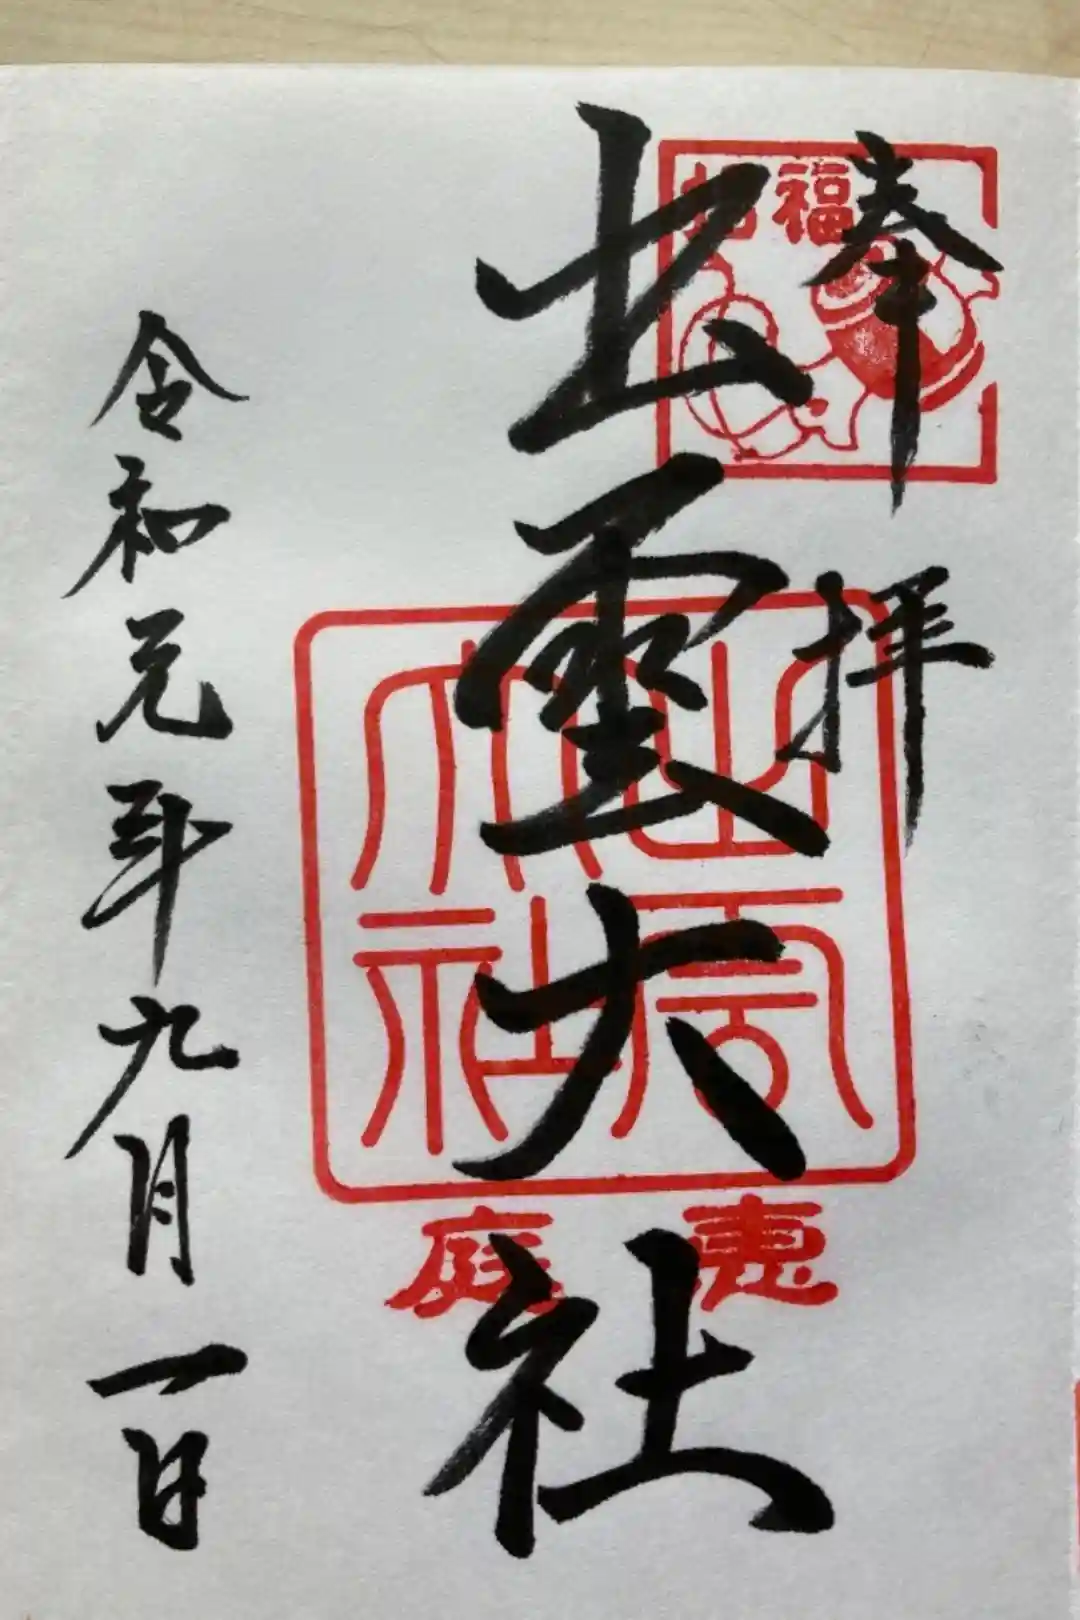 奉拝
福
出雲大社
出雲大社
恵庭
令和元年九月一日